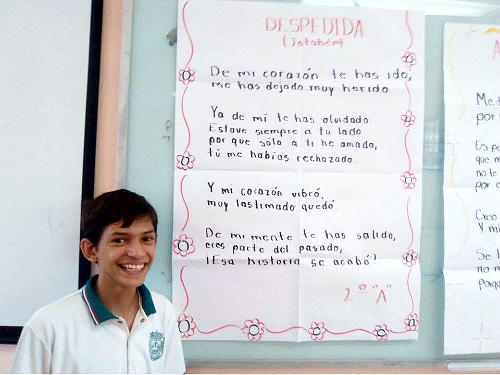 DESPEDIDA
(Jotabém)
De mi corazón te has ido,
me has dejado muy herido.
Ya de mí te has olvidado.
Estuve siempre a tu lado
porque sólo a ti he amado,
tú me habías rechazado.
Y mi corazón vibró,
muy lastimado quedó.
De mi mente te has salido,
eres parte del pasado,
¡Esa historia se acabó!
2º "A"
A
Me d
por
Es po
que m
no te
por e
Creo
Y mi
Se l
no m
Porqu